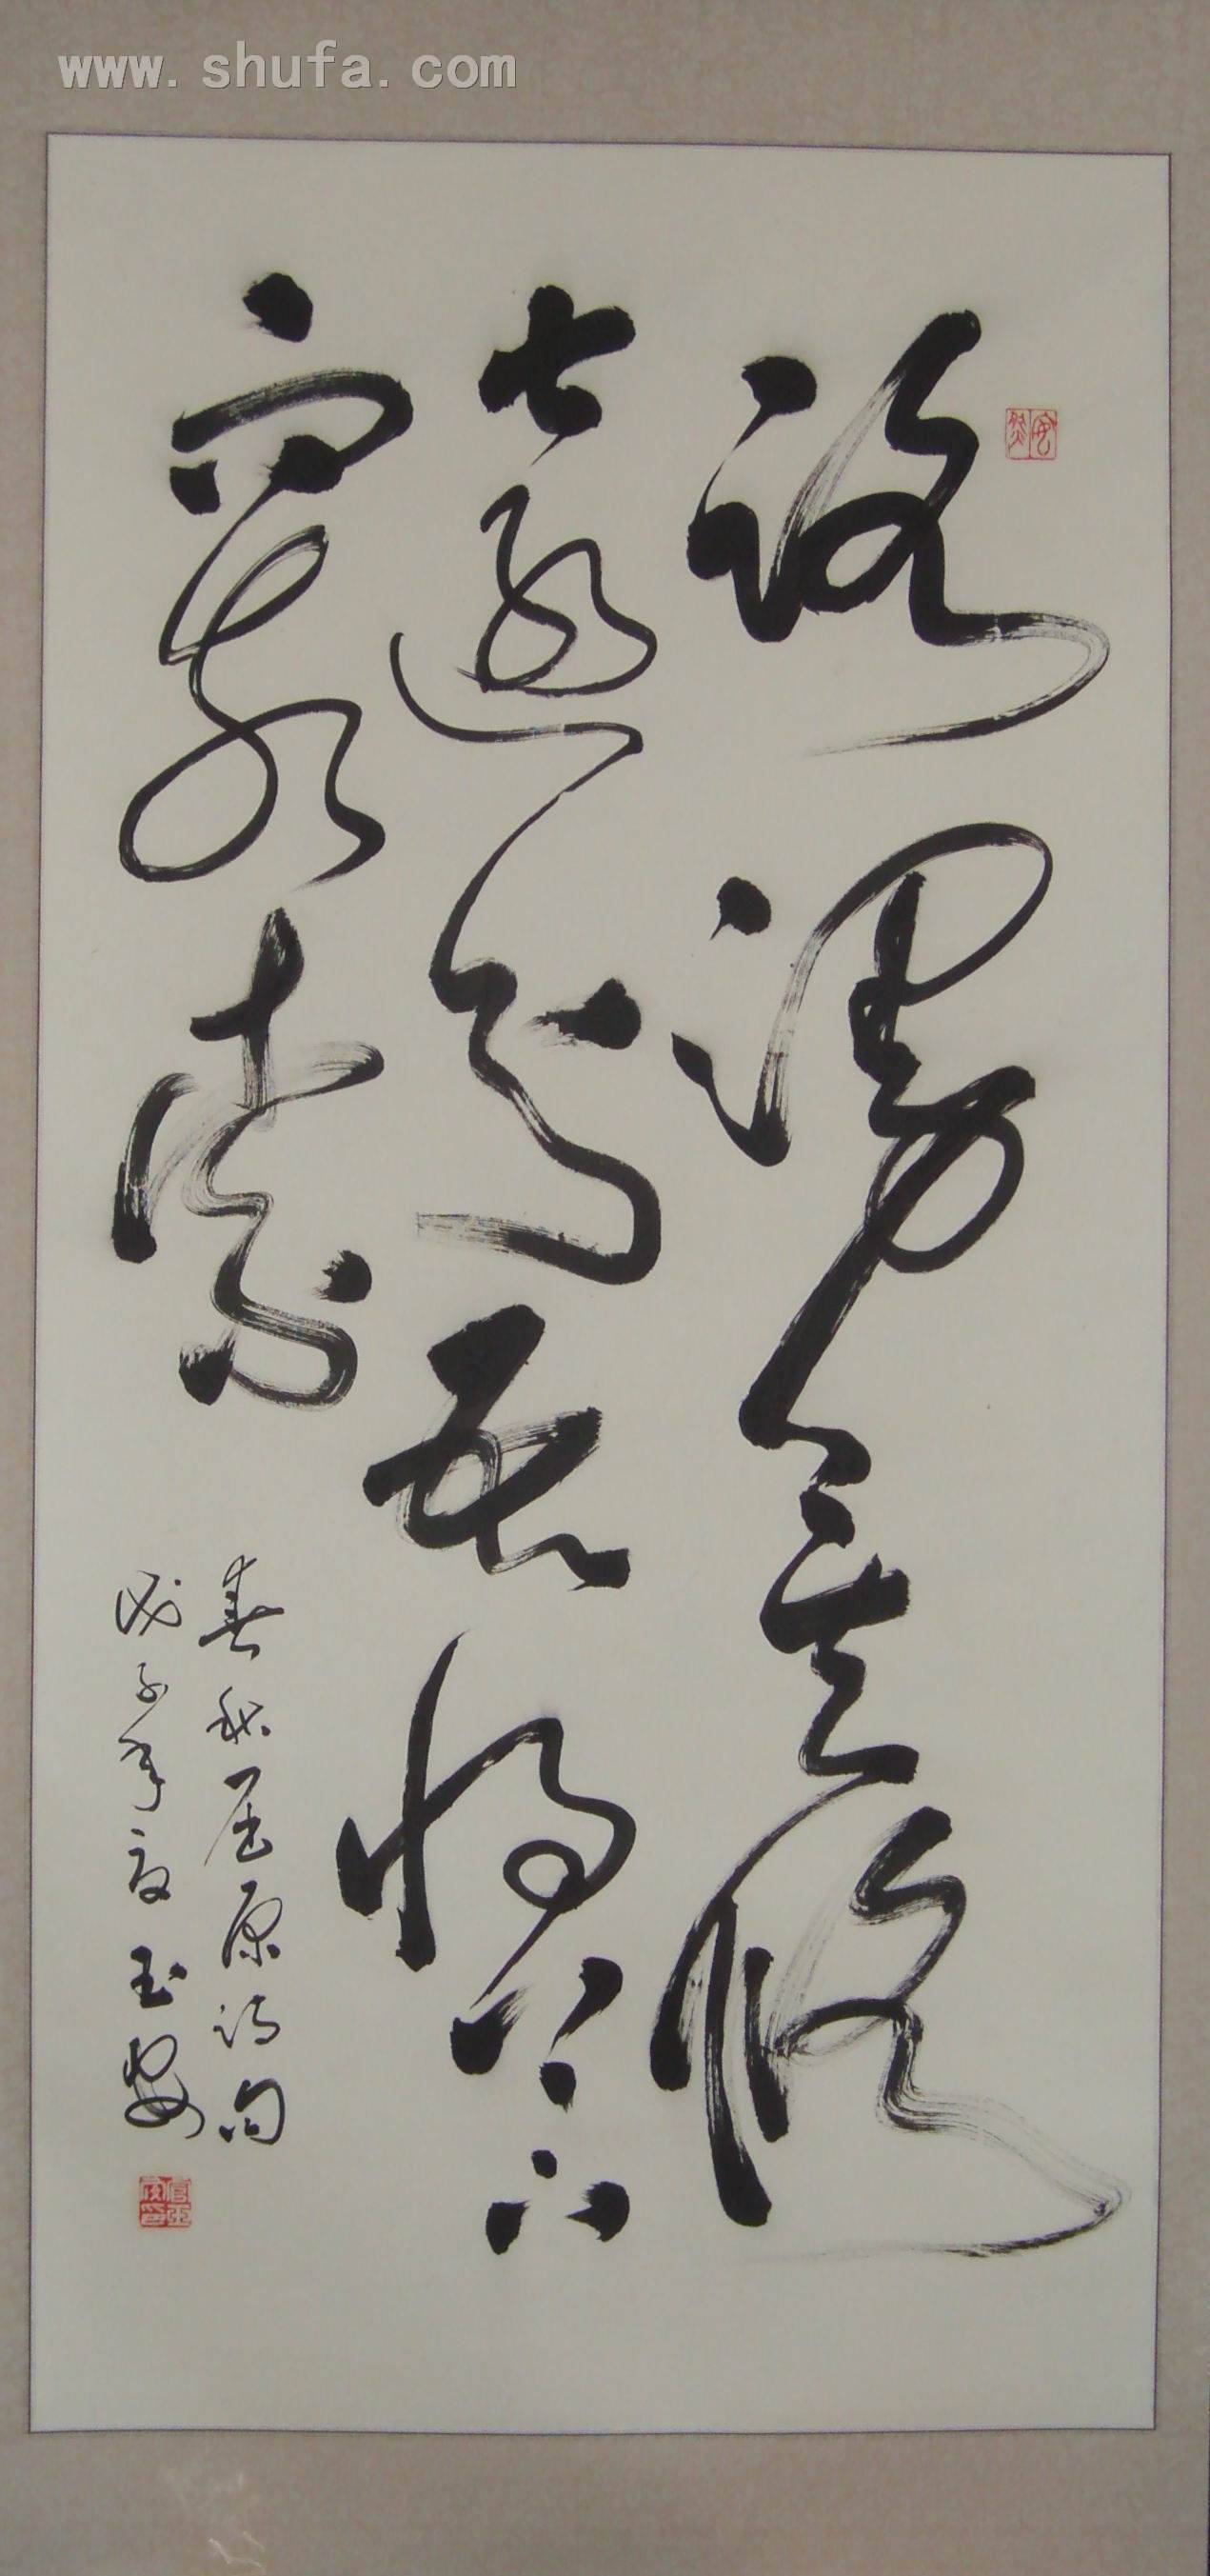 www.shufa.com
路漫々其修
遠兮吾将上下
而求索
春秋屈原诗句
戊子年夏玉安